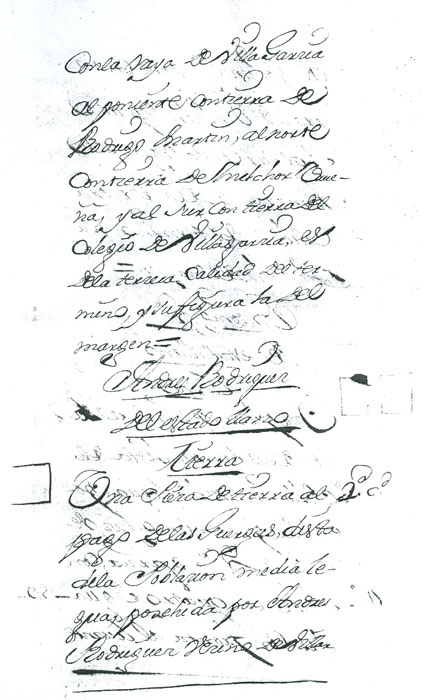 Con la raya de Villa Garzia
al poniente con tierra de
Rodrigo Martin, al norte
con tierra de Melchor
y al sur con tierra del
Colegio de Villagarzia, es
de la tercera calidad del ter-
mino, y su figura la del
margen=
Andres Rodriguez
del estado llano
Tierra
Una Pieza de tierra al
pago de las Huergas, dista
de la Poblazion media le-
gua, posehida por Andres
Rodriguez Vezino de Villar